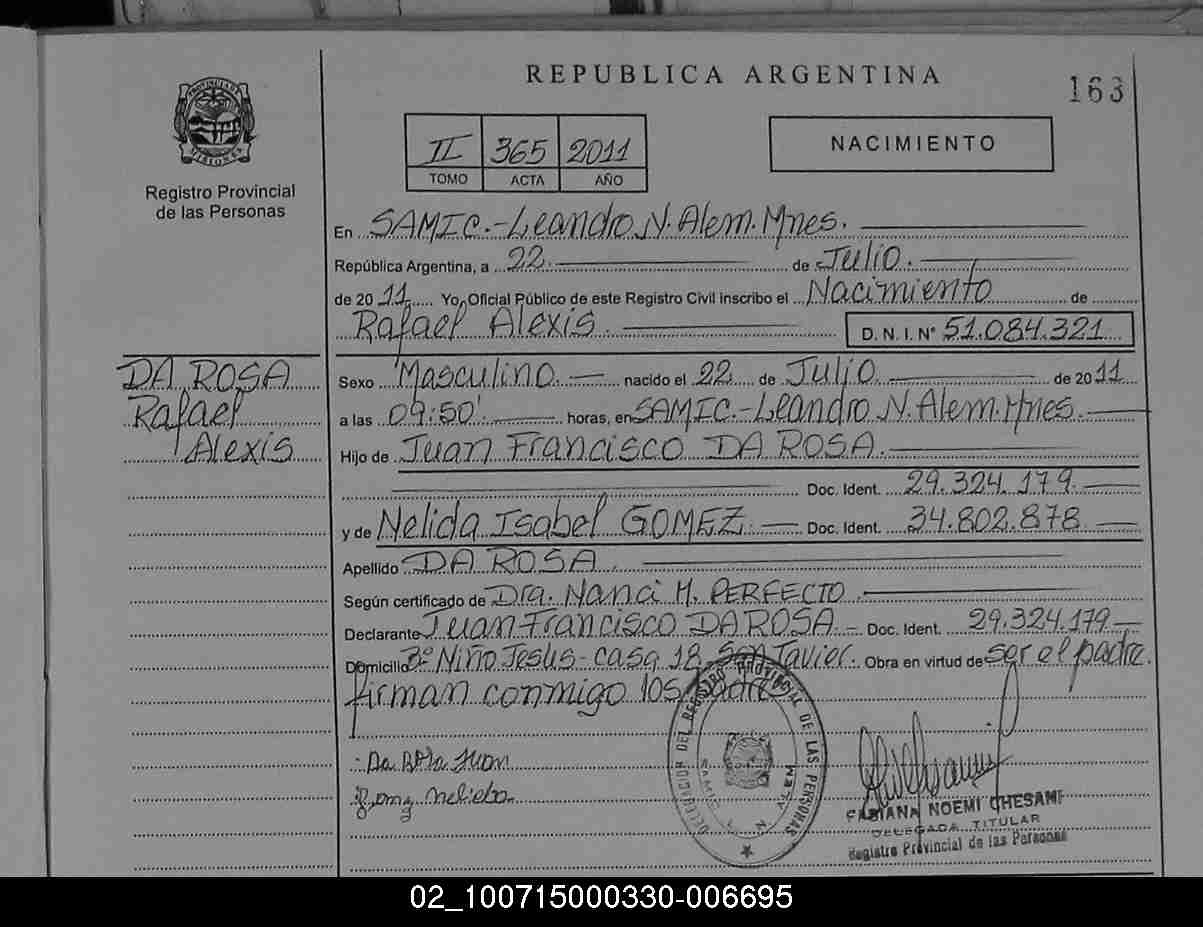 REPUBLICA ARGENTINA
163
PROVINCIA DE
MISIONES
Registro Provincial
de las Personas
II 365 2011
TOMO ACTA AÑO
NACIMIENTO
En SAMIC.-Leandro N. Alem. Mnes.
República Argentina, a 22 de Julio.
de 2011 Yo, Oficial Público de este Registro Civil inscribo el Nacimiento de
Rafael Alexis. D. N. I. Nº 51.084.321
DA ROSA
Rafael
Alexis
Sexo Masculino. nacido el 22 de Julio de 2011
a las 09:50' horas, en SAMIC.-Leandro N. Alem. Mnes.
Hijo de Juan Francisco DA ROSA.
Doc. Ident. 29.324.179.
y de Nelida Isabel GOMEZ. Doc. Ident. 34.802.878
Apellido DA ROSA
Según certificado de Dra. Nanci M. PERFECTO.
Declarante Juan Francisco DA ROSA.- Doc. Ident. 29.324.179
Domicilio Bº Niño Jesus- casa 18. San Javier. Obra en virtud de ser el padre.
firman conmigo los padres
Da Rosa Juan
Gomez Nelida
DELEGACION DEL REGISTRO PROVINCIAL DE LAS PERSONAS
SAMIC L N ALEM
FABIANA NOEMI CHESANI
DELEGADA TITULAR
Registro Provincial de las Personas
02_100715000330-006695